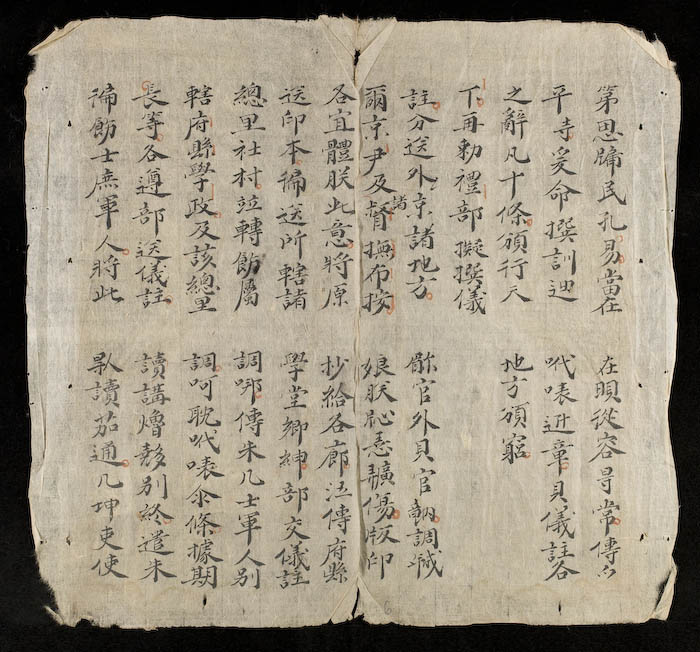 第思牖民孔易當在
平寺爰命撰訓迪
之辭凡十條頒行天
下再勅禮部擬撰儀
註分送外京諸地方
爾京尹及諸督撫布按
各宜體朕此意將原
送印本徧送所轄諸
總里社村竝轉飭屬
轄府縣學政及該總里
長等各遵部送儀註
徧飭士庶軍人將此
在從容㝵常傳
章貝儀註各
地方頒窮
官外貝官調
娘朕傷版印
抄給各廊汪傳府縣
學堂鄉紳部交儀註
調傳朱几士軍人別
調呵耽條據期
讀講別終遣朱
讀茄通几坤吏使